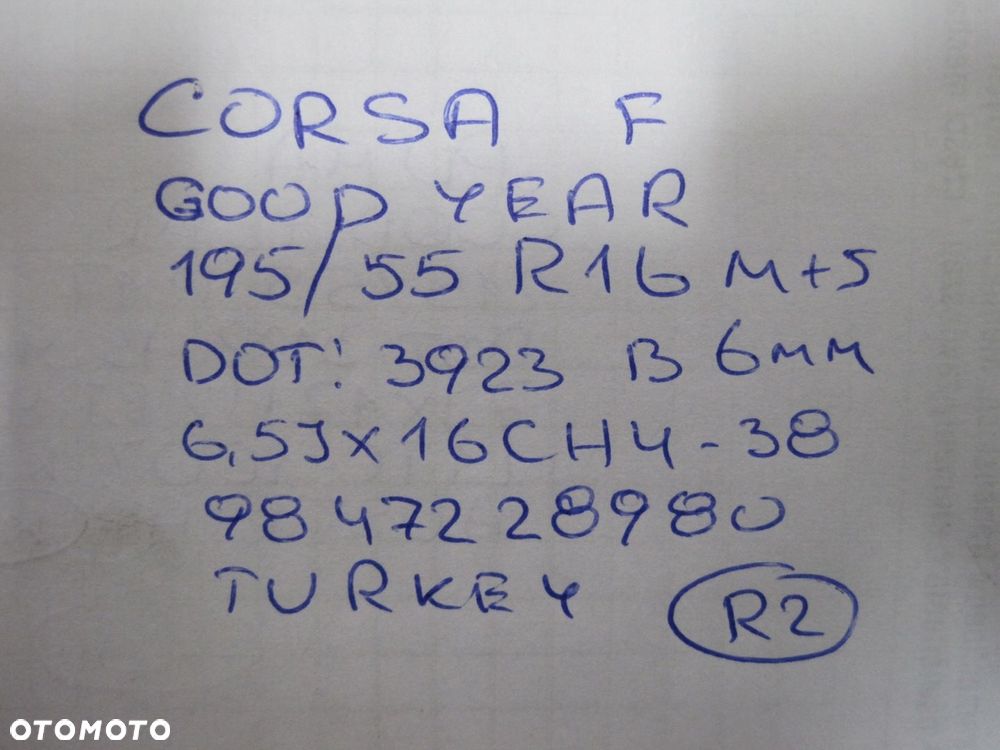 CORSA F
GOOD YEAR
195/55 R16 M+S
DOT: 3923 B 6mm
6,5Jx16CH4-38
98 472 28980
TURKEY R2
OTOMOTO